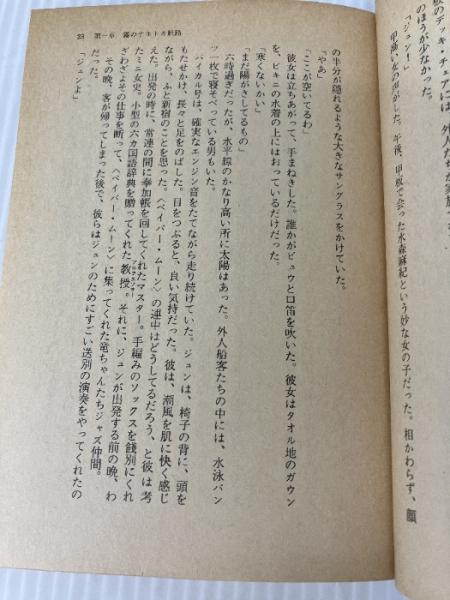 のデッキ・チェアには、外人たちが家族
のほうが少なかった。
「ジュン！」
甲高い女の声がした。午後、甲板で会った水森麻紀という妙な女の子だった。相かわらず、顔
第一章 霧のナホトカ航路
の半分が隠れるような大きなサングラスをかけていた。
「やあ」
「ここが空いてるわ」
彼女は立ちあがって、手まねきした。誰かがピュウと口笛を吹いた。彼女はタオル地のガウン
を、ビキニの水着の上にはおっているだけだった。
「寒くないかい」
「まだ陽がさしてるもの」
六時過ぎだったが、水平線のかなり高い所に太陽はあった。外人船客たちの中には、水泳パン
ツ一枚で寝そべっている男もいた。
バイカル号は、確実なエンジン音をたてながら走り続けていた。ジュンは、椅子の背に、頭を
もたせかけ、長々と足をのばした。目をつぶると、良い気持だった。彼は、潮風を肌に快く感じ
ながら、ふと新宿のことを思った。〈ペイパー・ムーン〉の連中はどうしてるだろう、と彼は考
えた。出発の時に、常連の間に奉加帳を回してくれたマスター。手編みのソックスを餞別にくれ
たミニ女史。小型の六カ国語辞典を贈ってくれた教授。それに、ジュンが出発する前の晩、わ
ざわざよその仕事を断って、〈ペイパー・ムーン〉に集ってくれた竜ちゃんたちジャズ仲間。
その晩、客が帰ってしまった後で、彼らはジュンのためにすごい送別の演奏をやってくれたの
だった。
「ジュンよ」